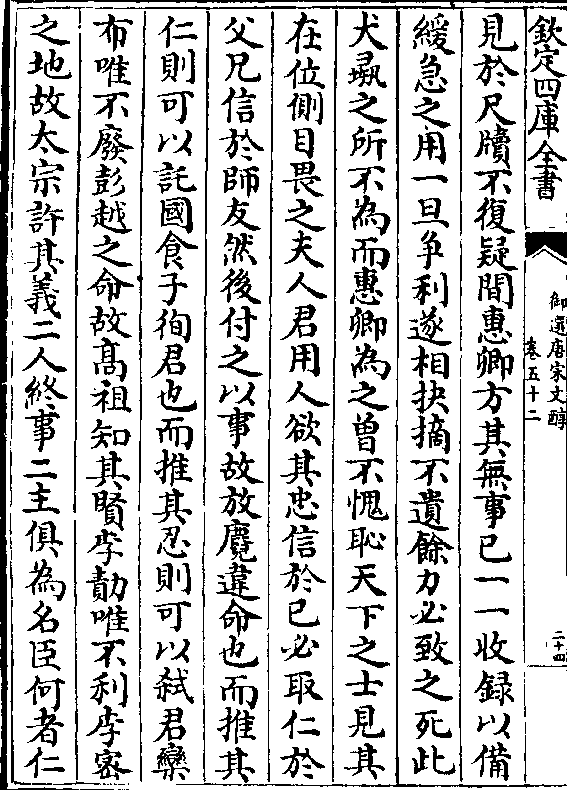 欽定四庫全書
御選唐宋文醇
卷五十二
二十四
見於尺牘不復疑間惠卿方其無事已一一收録以備
緩急之用一旦争利遂相抉摘不遺餘力必致之死此
犬彘之所不為而惠卿為之曽不愧恥天下之士見其
在位側目畏之夫人君用人欲其忠信於已必取仁於
父兄信於師友然後付之以事故放麑違命也而推其
仁則可以託國食子徇君也而推其忍則可以弑君欒
布唯不廢彭越之命故髙祖知其賢李勣唯不利李密
之地故太宗許其義二人終事二主俱為名臣何者仁